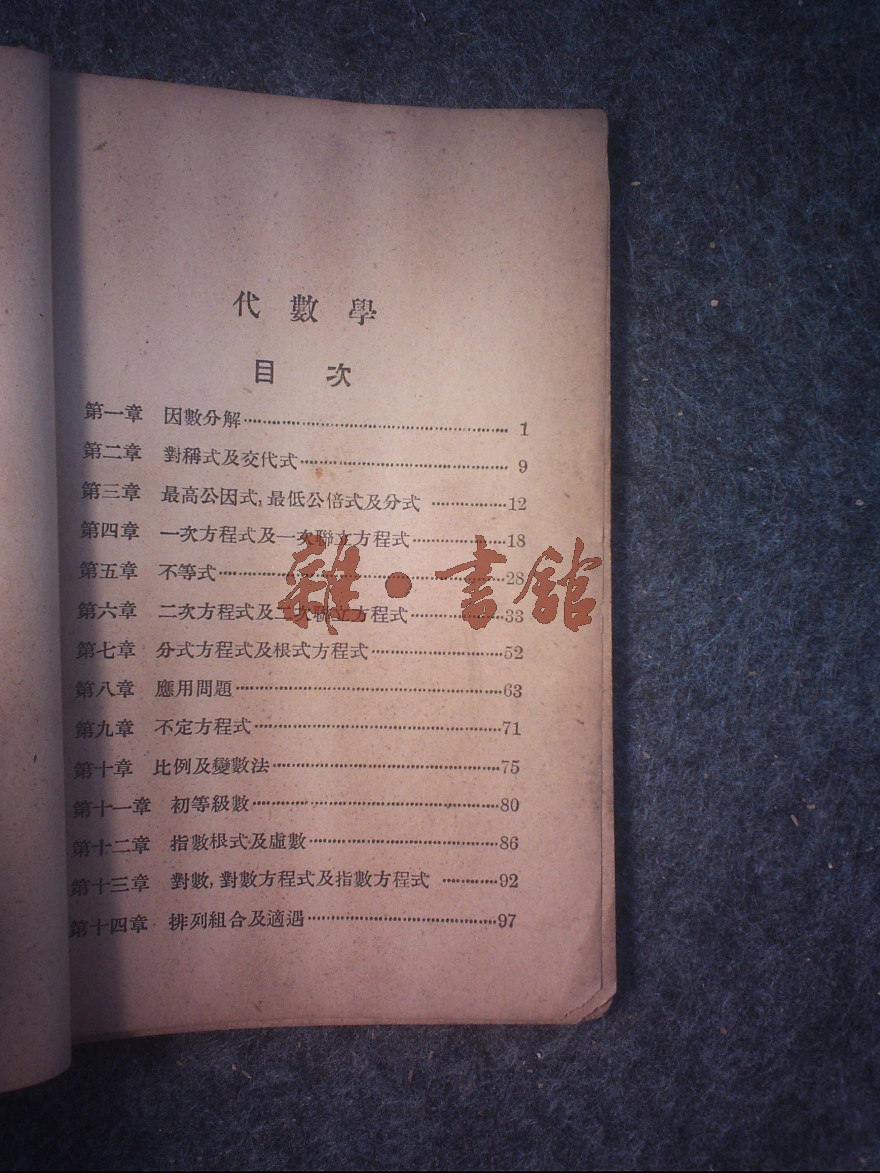 代數學
目次
第一章 因數分解 1
第二章 對稱式及交代式 9
第三章 最高公因式,最低公倍式及分式 12
第四章 一次方程式及一次聯立方程式 18
第五章 不等式 28
第六章 二次方程式及二次聯立方程式 33
第七章 分式方程式及根式方程式 52
第八章 應用問題 63
第九章 不定方程式 71
第十章 比例及變數法 75
第十一章 初等級數 80
第十二章 指數根式及虛數 86
第十三章 對數,對數方程式及指數方程式 92
第十四章 排列組合及適遇 97
雜·書館